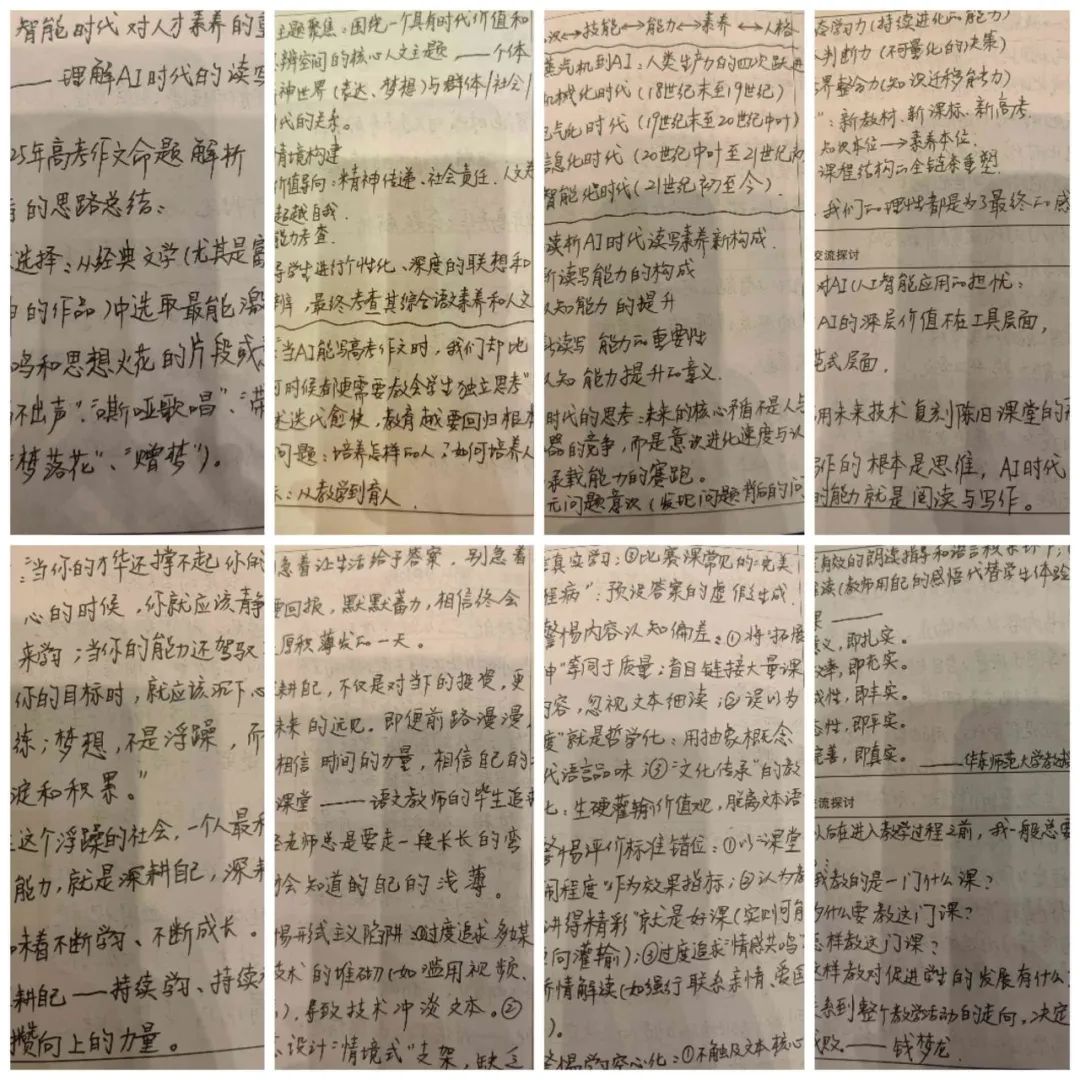 智能时代对人才素养的重
——理解AI时代的读写
25年高考作文命题解析
的思路总结:
选择:从经典文学(尤其是富
的作品)中选取最能激
鸣和思想火花的片段或
不出声”、“嘶哑歌唱”、“带
梦落花”、“赠梦”)。
主题聚焦:围绕一个具有时代价值和
辨空间的核心人文主题——个体
神世界(表达、梦想)与群体/社会/
代的关系。
情境构建
价值导向:精神传递、社会责任、人文
超越自我.
能力考查.
导学生进行个性化、深度的联想和
辨,最终考查其综合语文素养和人文
“当AI能写高考作文时,我们却比
何时候都更需要教会学生独立思考”
术迭代愈快,教育越要回归根本
问题:培养怎样的人?如何培养人
:从教学到育人
识↔技能↔能力↔素养↔人格
蒸汽机到AI:人类生产力的四次跃进
机械化时代(18世纪末至19世纪)
电气化时代(19世纪末至20世纪中叶)
信息化时代(20世纪中叶至21世纪初
智能化时代(21世纪初至今).
读析AI时代读写素养新构成.
析读写能力的构成
认知能力的提升
读写能力的重要性
认知能力提升的意义.
时代的思考:未来的核心矛盾不是人与
器的竞争,而是意识进化速度与认
承载能力的赛跑。
元问题意识(发现问题背后的问
态学习力(持续进化的能力)
判断力(不可量化的决策)
界整合力(知识迁移能力)
”:新教材、新课标、新高考.
知识本位→素养本位.
课程结构的全链条重塑.
我们的理性都是为了最终的感
交流探讨
对AI(人工智能应用的担忧:
AI的深层价值不在工具层面,
范式层面.
用未来技术复刻陈旧课堂的
写作的根本是思维,AI时代
的能力就是阅读与写作。
“当你的才华还撑不起你的
心的时候,你就应该静
来学习;当你的能力还驾驭
你的目标时,就应该沉下心
练;梦想,不是浮躁,而
淀和积累。”
这个浮躁的社会,一个人最
能力,就是深耕自己,深耕
味着不断学习、不断成长。
耕自己——持续学习、持续
攒向上的力量。
急着让生活给予答案,别急着
要回报,默默蓄力,相信终会
厚积薄发的一天。
耕自己,不仅是对当下的投资,更
未来的远见。即便前路漫漫,
相信时间的力量,相信自己的
课堂——语文教师的毕生追
老师总是要走一段长长的弯
会知道的自己的浅薄。
惕形式主义陷阱:①过度追求多媒
技术的堆砌(如滥用视频、
),导致技术冲淡文本。②
设计“情境式”支架,缺乏
真实学习;③比赛课常见的“完美
程病”:预设答案的虚假生成.
警惕内容认知偏差:①将“拓展
伸”等同于质量:盲目链接大量课
内容,忽视文本细读;②误以为
度”就是哲学化:用抽象概念
代语言品味;③“文化传承”的教
化:生硬灌输价值观,脱离文本语
警惕评价标准错位:①以“课堂
闹程度”作为效果指标;②认为教
讲得精彩”就是好课(实则可能
向灌输);③过度追求“情感共鸣”
情解读(如强行联系亲情、爱国
).
警惕学习空心化:①不触及文本核心
有效的朗读指导和语言
解读(教师用自己的感悟代替学生体验
课——
意义,即扎实。
效率,即充实。
成性,即丰实。
态性,即平实。
完善,即真实。
——华东师范大学教
交流探讨
以后在进入教学过程之前,我一般总要
我教的是一门什么课?
为什么要教这门课?
怎样教这门课?
这样教对促进学生的发展有什么
系到整个教学活动的走向,决定
败.——钱梦龙